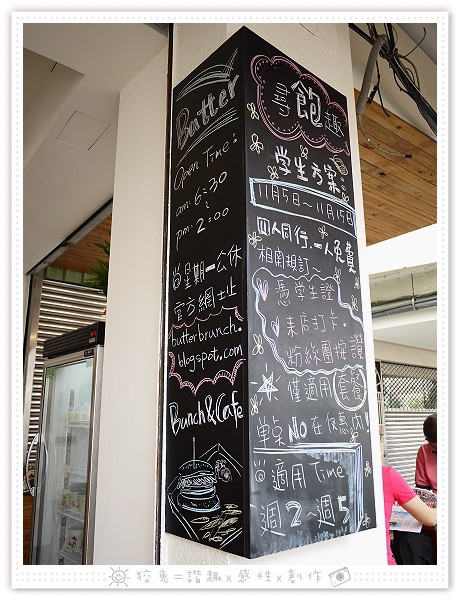 Butter
Open Time:
am: 6:30
~
pm: 2:00
尋飽趣
學生方案:
11月5日~11月15日
四人同行.一人免費
相關規訂~
憑學生證
來店打卡.
粉絲團按讚
僅適用套餐
單點NO在優惠內!
適用Time
週2~週5
星期一公休
官方網址
butterbrunch.
blogspot.com
Brunch&Cafe
狡兔=諧趣x感性x創作